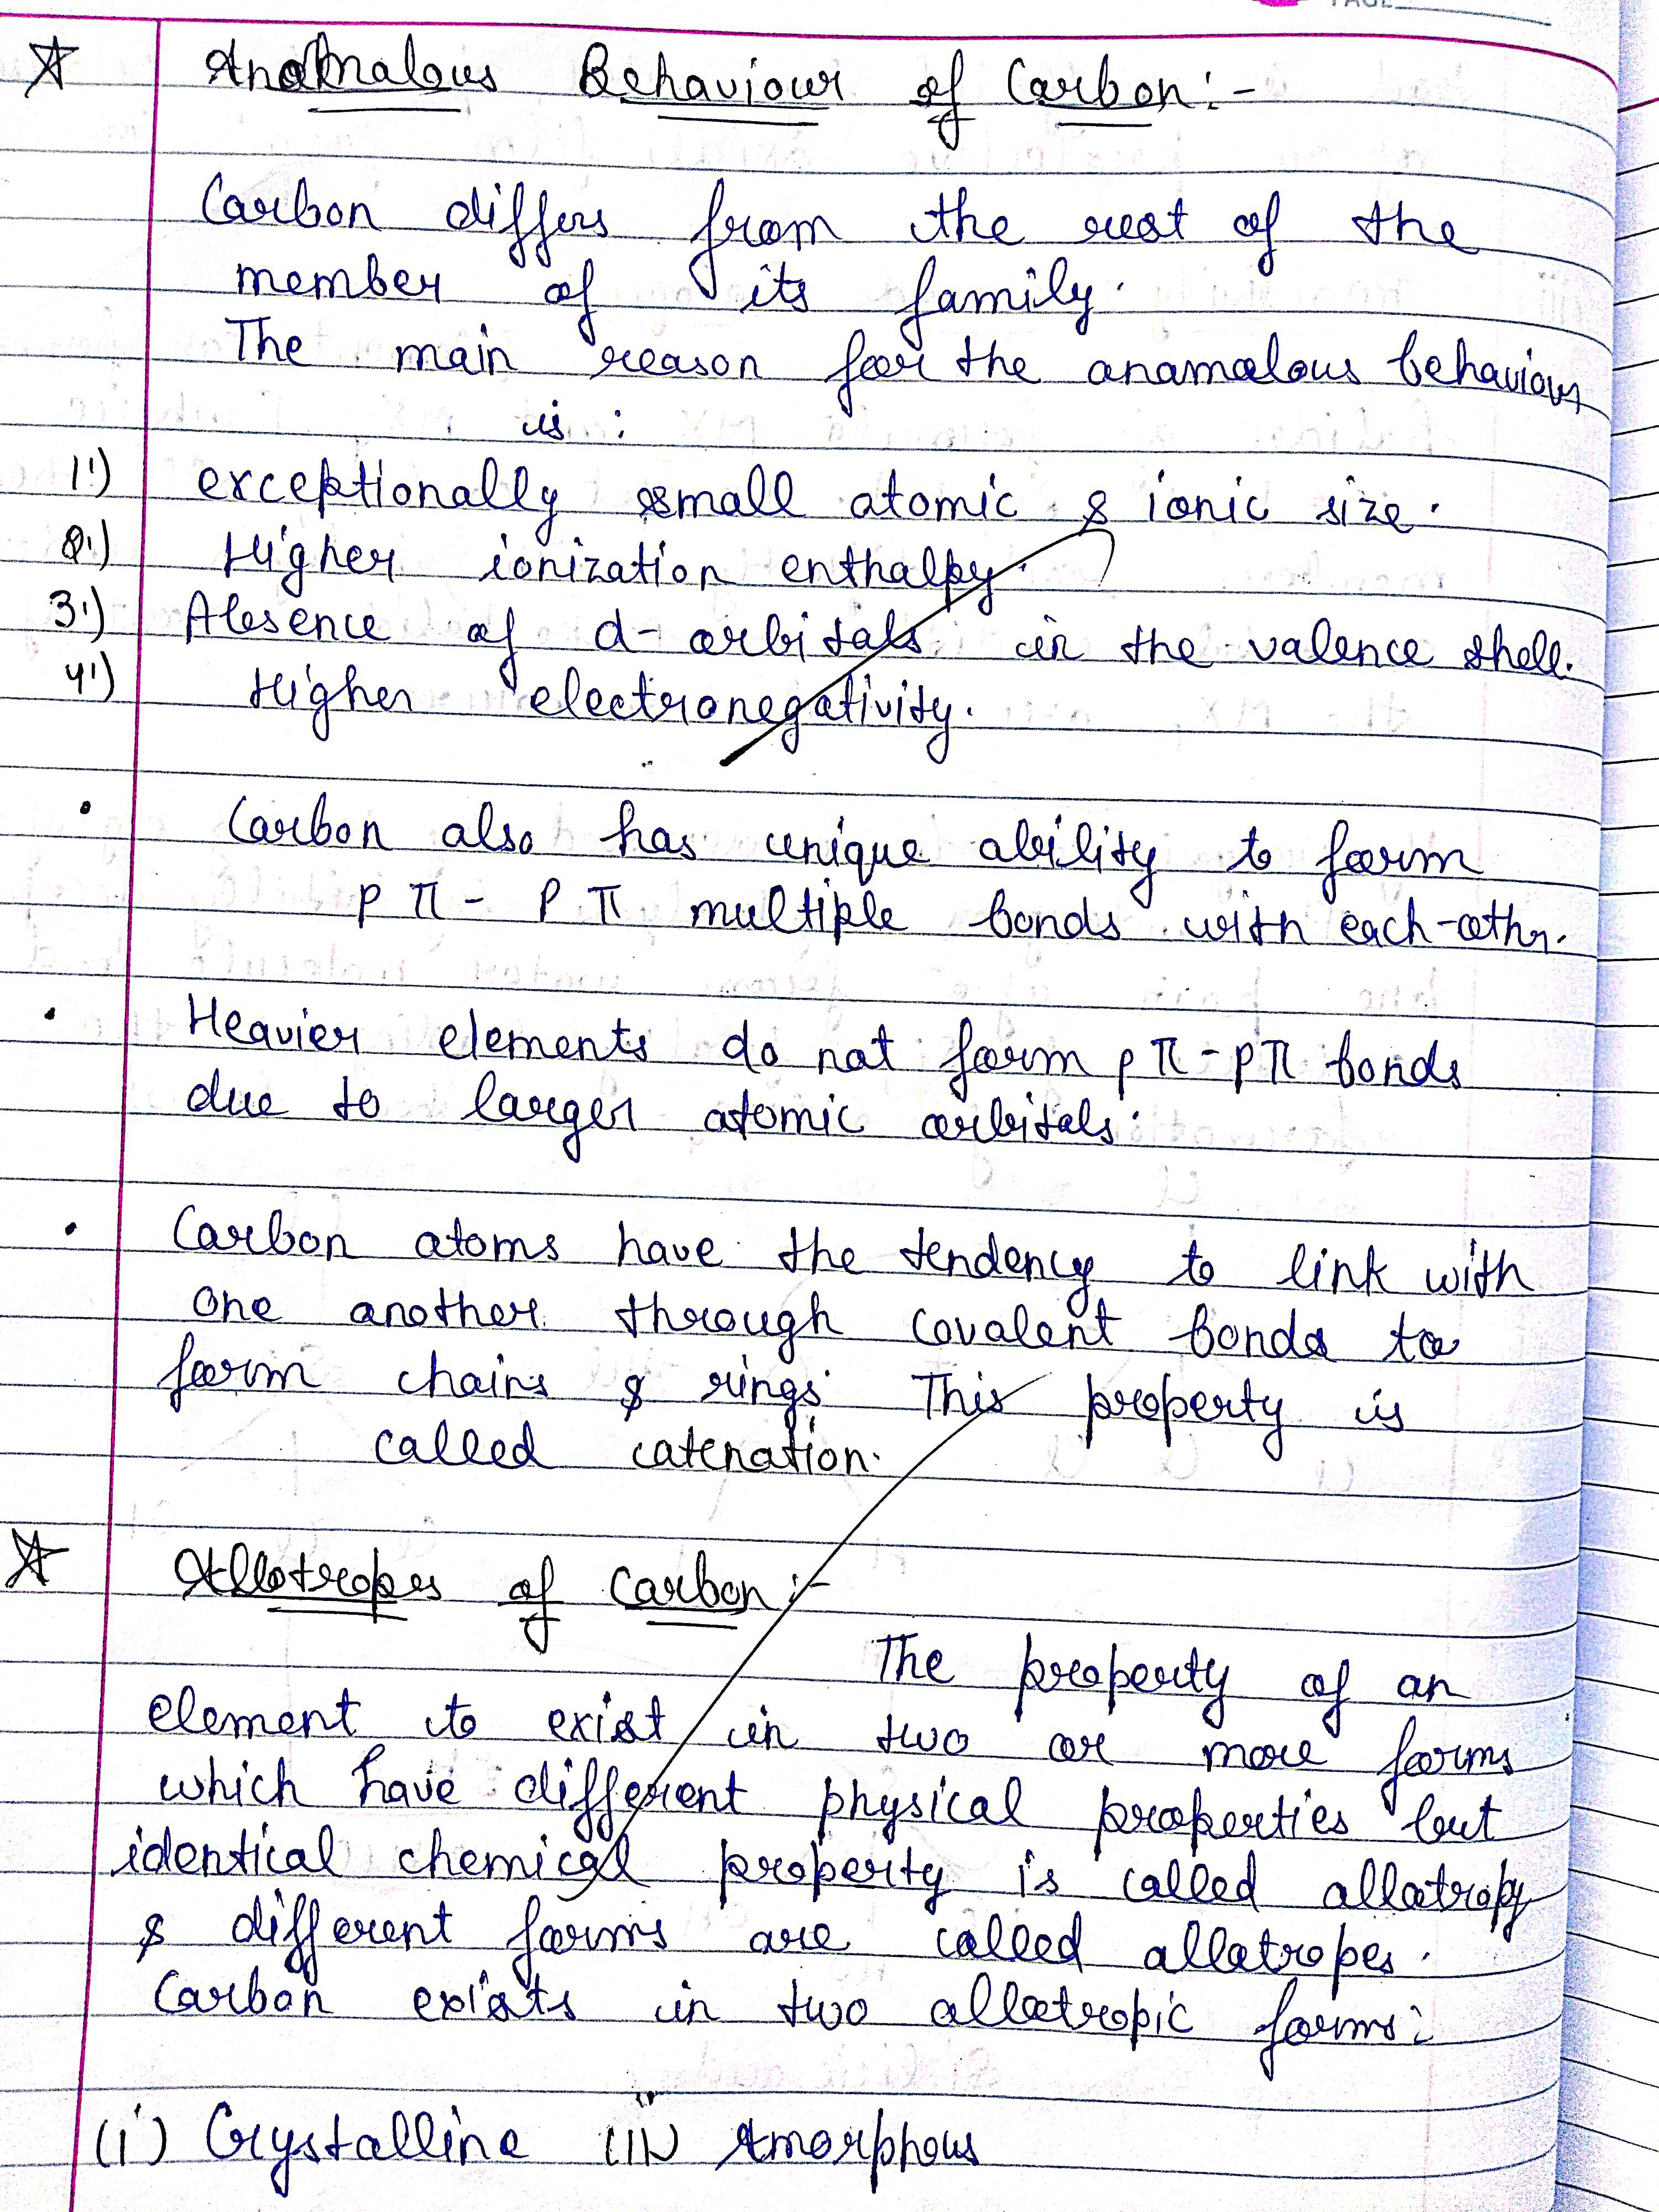 PAGE
☆ Anomalous Behaviour of Carbon:-
Carbon differs from the rest of the
member of its family.
The main reason for the anamalous behaviour
is :
1.) exceptionally small atomic & ionic size.
2.) Higher ionization enthalpy.
3.) Absence of d-orbitals in the valence shell.
4.) Higher electronegativity.
• Carbon also has unique ability to form
pπ - pπ multiple bonds with each-othr.
• Heavier elements do not form pπ-pπ bonds
due to larger atomic orbitals.
• Carbon atoms have the tendency to link with
one another through covalent bonds to
form chains & rings. This property is
called catenation.
☆ Allotropes of Carbon:-
The property of an
element to exist in two or more forms
which have different physical properties but
identical chemical property is called allotropy
& different forms are called allotropes.
Carbon exists in two allotropic forms:
(i) Crystalline (ii) Amorphous